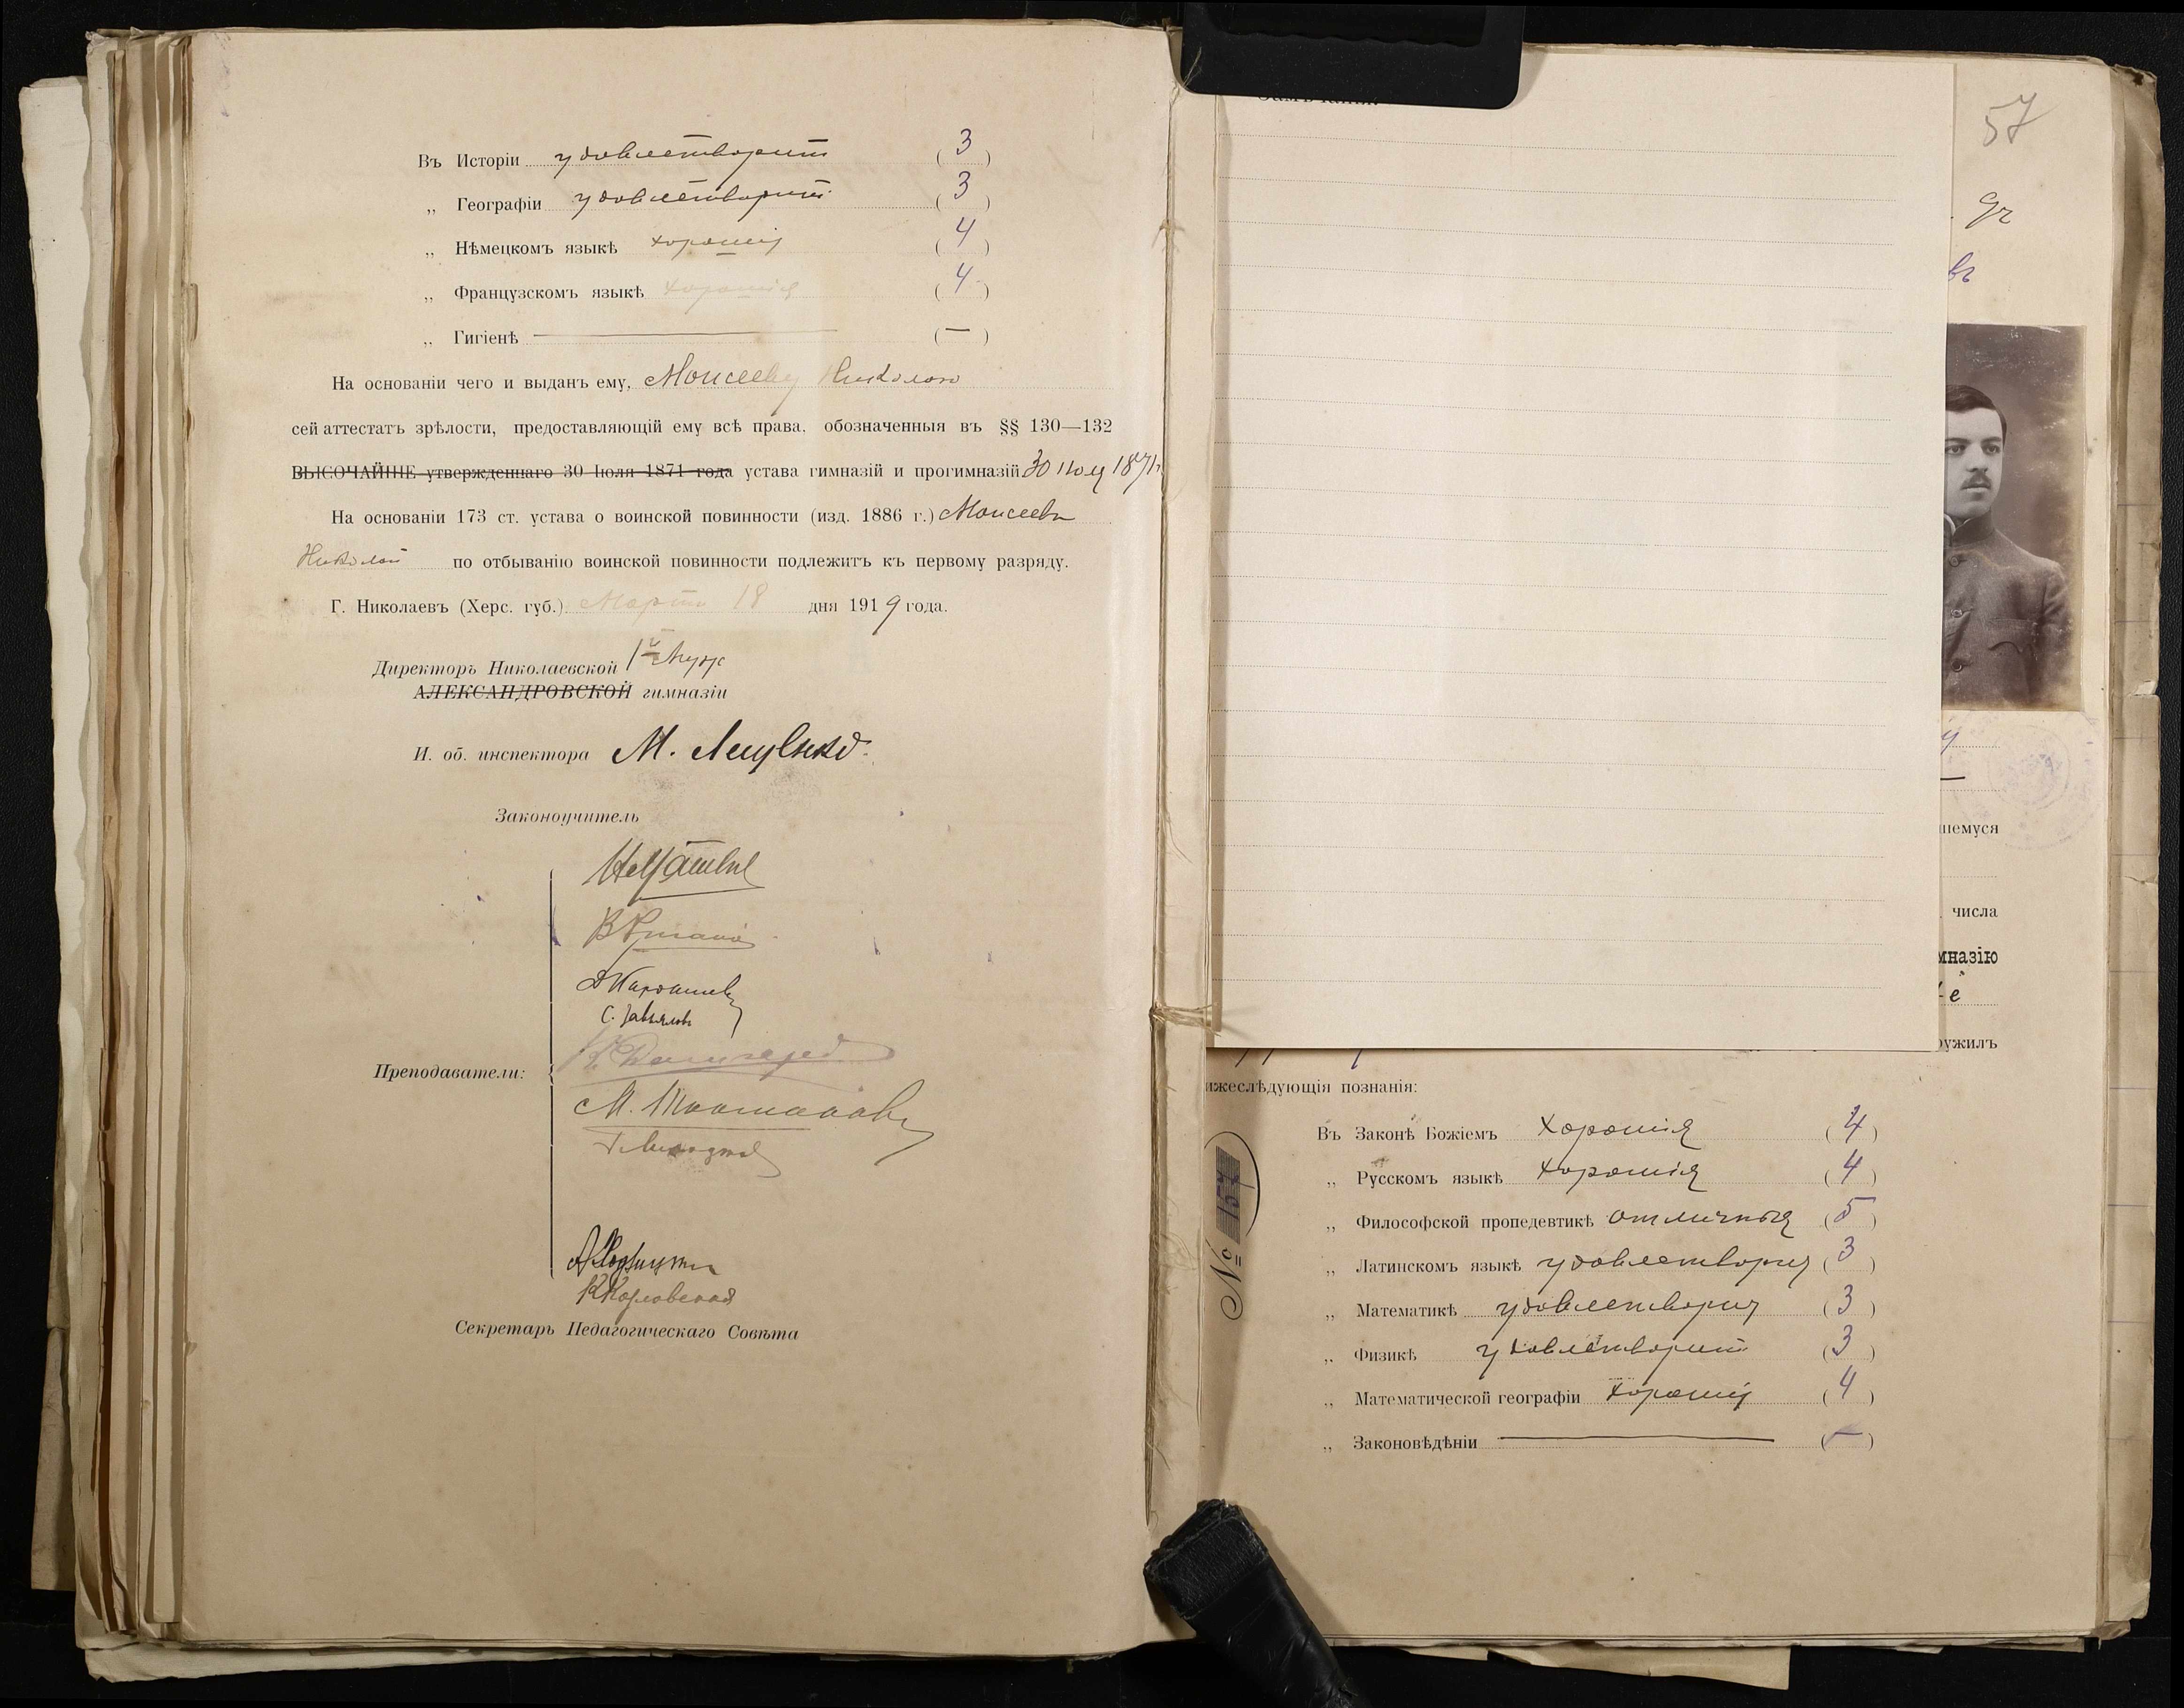 Въ Исторіи удовлетворит (3)
„ Географіи удовлетворит (3)
„ Нѣмецкомъ языкѣ хорошія (4)
„ Французскомъ языкѣ хорошія (4)
„ Гигіенѣ — (—)
На основаніи чего и выданъ ему, Моисееву Николаю
сей аттестатъ зрѣлости, предоставляющій ему всѣ права, обозначенныя въ §§ 130—132
ВЫСОЧАЙШЕ утвержденнаго 30 Іюля 1871 года устава гимназій и прогимназій 30 іюля 1871 г.
На основаніи 173 ст. устава о воинской повинности (изд. 1886 г.) Моисеевъ
Николай по отбыванію воинской повинности подлежитъ къ первому разряду.
Г. Николаевъ (Херс. губ.) Марта 18 дня 1919 года.
Директоръ Николаевской 1й муж
АЛЕКСАНДРОВСКОЙ гимназіи
И. об. инспектора М. Лещенко
Законоучитель
С. Завьяловъ
Преподаватели:
К Карловская
Секретарь Педагогическаго Совѣта
57
въ
шемуся
числа
мназію
е
ружилъ
ижеслѣдующія познанія:
Въ Законѣ Божіемъ Хорошія (4)
„ Русскомъ языкѣ хорошія (4)
„ Философской пропедевтикѣ отличныя (5)
„ Латинскомъ языкѣ удовлетворит (3)
„ Математикѣ удовлетворит (3)
„ Физикѣ удовлетворит (3)
„ Математической географіи хорошія (4)
„ Законовѣдѣніи — (—)
№ 157